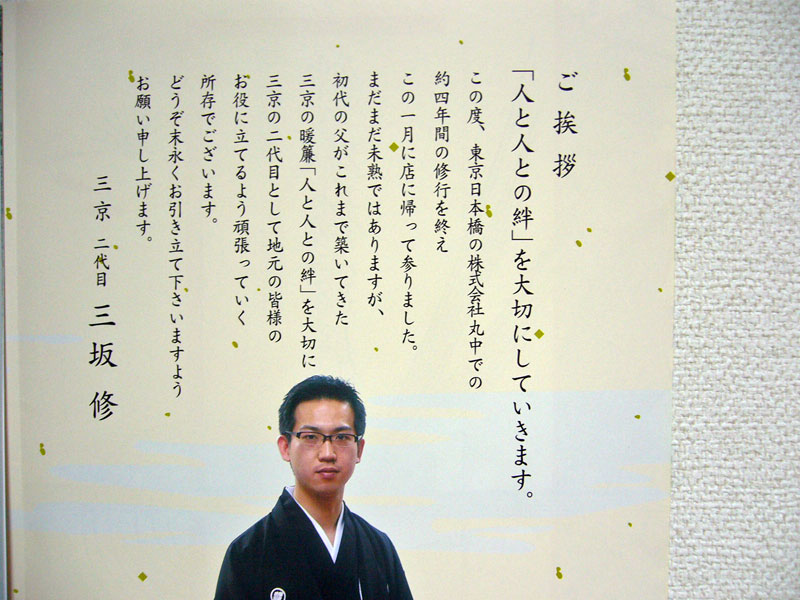 ご挨拶
「人と人との絆」を大切にしていきます。
この度、東京日本橋の株式会社丸中での
約四年間の修行を終え
この一月に店に帰って参りました。
まだまだ未熟ではありますが、
初代の父がこれまで築いてきた
三京の暖簾「人と人との絆」を大切に
三京の二代目として地元の皆様の
お役に立てるよう頑張っていく
所存でございます。
どうぞ末永くお引き立て下さいますよう
お願い申し上げます。
三京 二代目 三坂 修